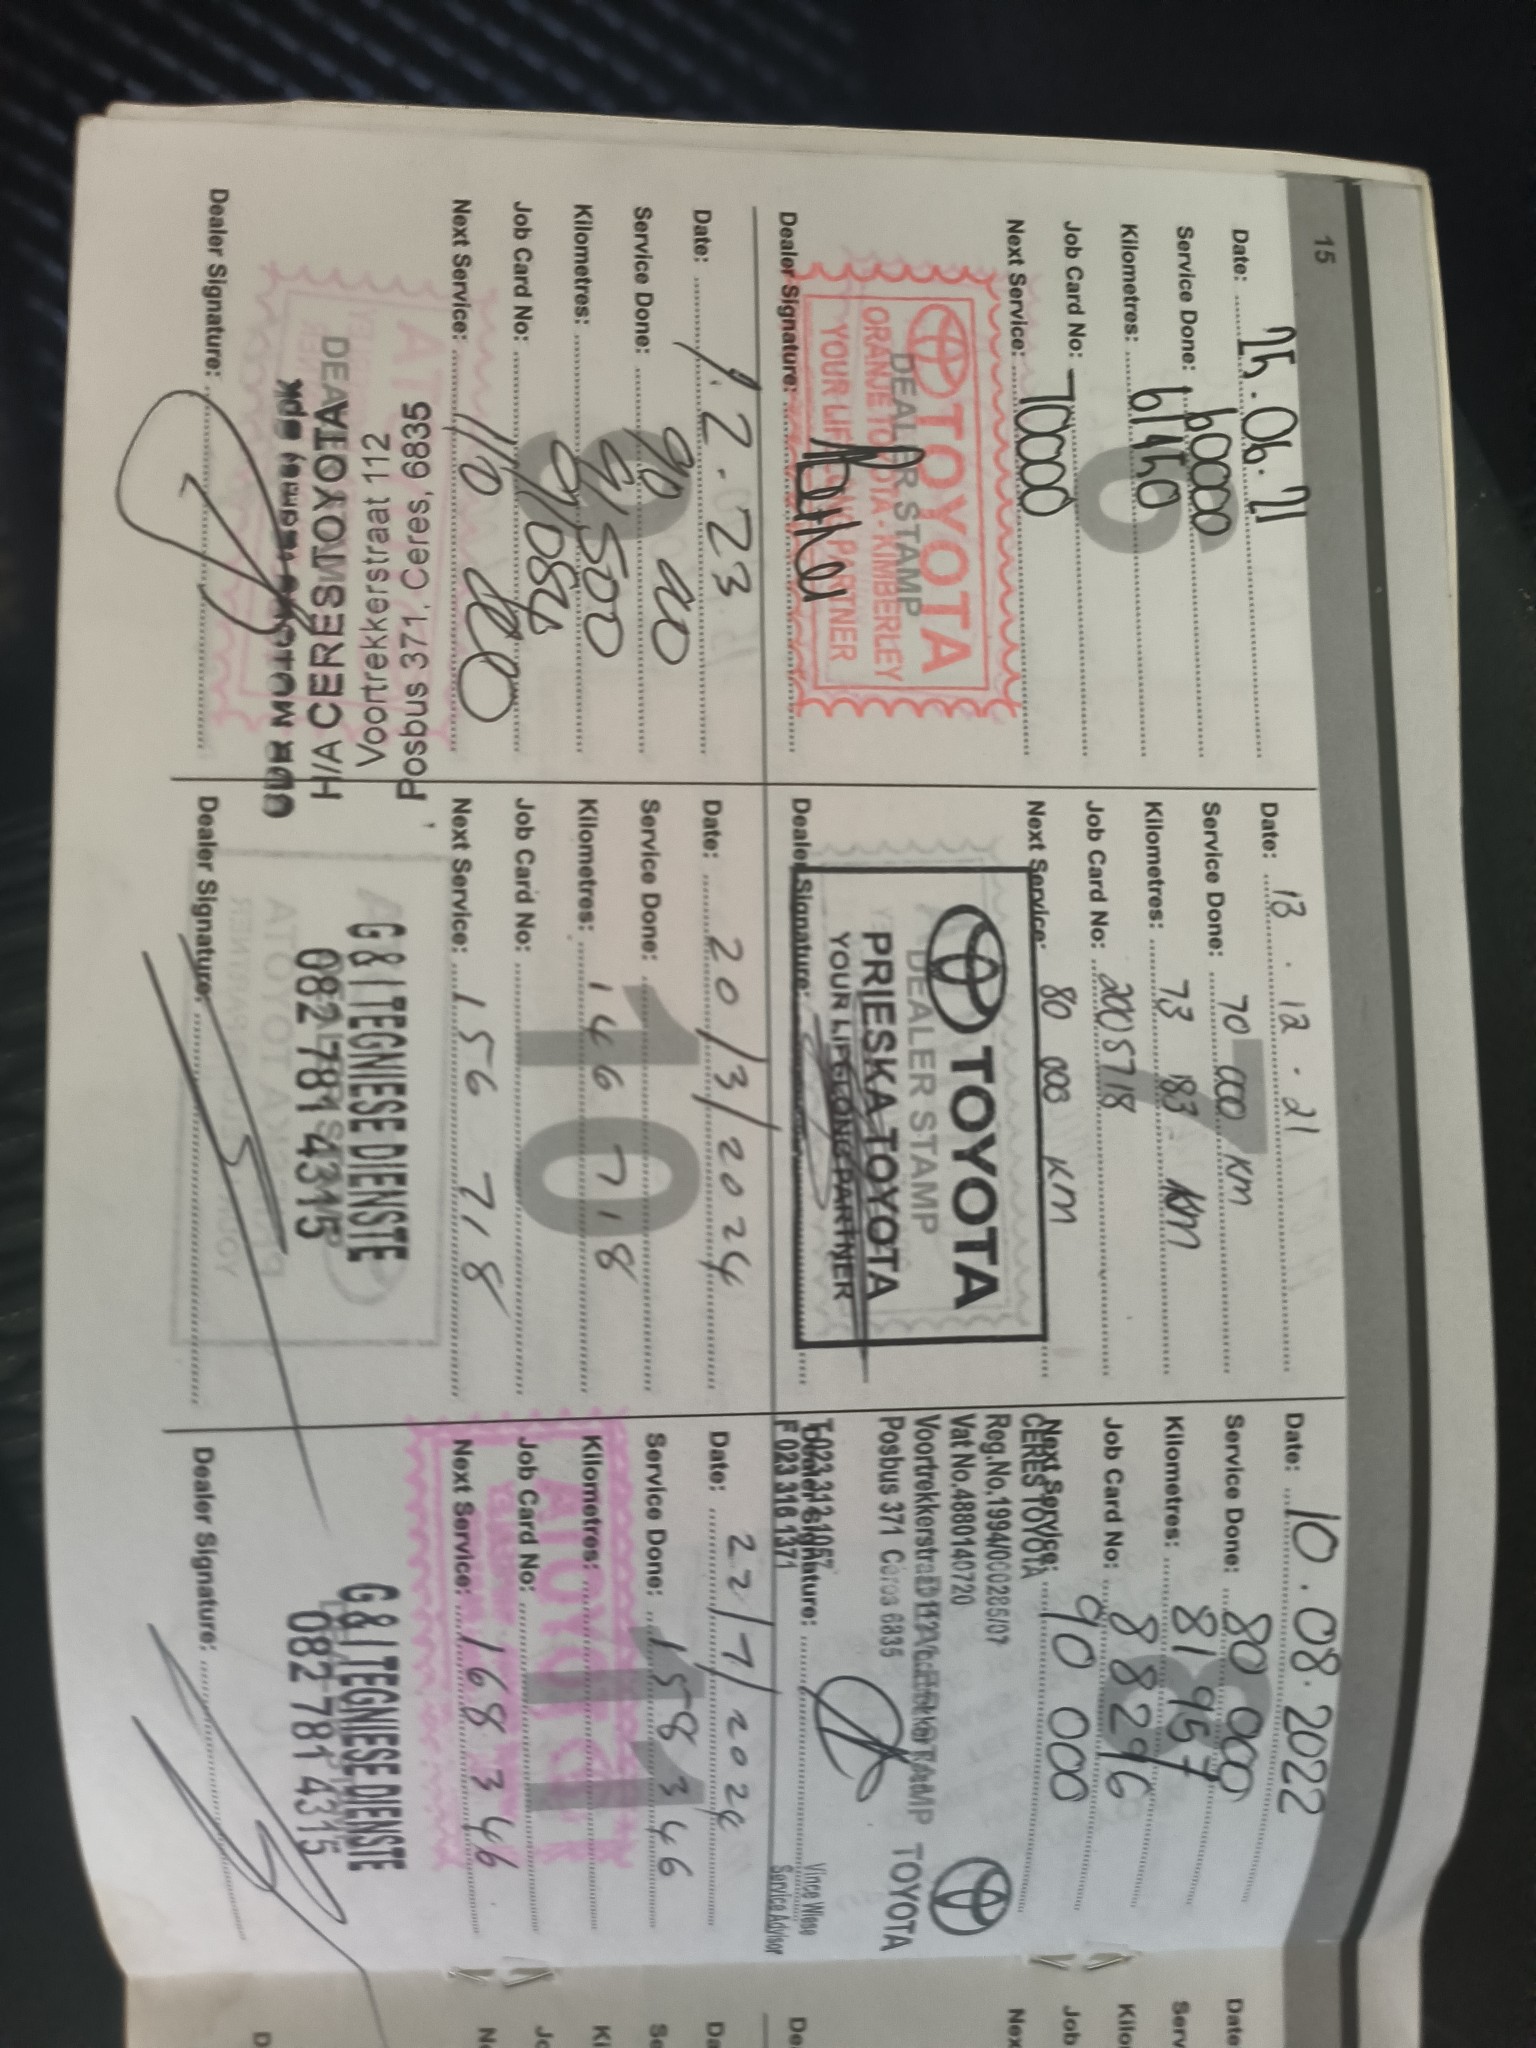 15
Date: 25.06.21
Service Done: 60000
Kilometres: 61450
Job Card No:
Next Service: 70000
TOYOTA
ORANJE TOYOTA - KIMBERLEY
DEALER STAMP
YOUR LIFELONG PARTNER
Dealer Signature:
6
Date: 13.12-21
Service Done: 70 000 km
Kilometres: 73 183 km
Job Card No: 2005718
Next Service: 80 000 km
TOYOTA
DEALER STAMP
PRIESKA TOYOTA
YOUR LIFELONG PARTNER
Dealer Signature:
7
Date: 10.08.2022
Service Done: 80 000
Kilometres: 81 957
Job Card No: 88296
Next Service: 90 000
CERES TOYOTA
Reg.No.1994/000285/07
Vat No.4880140720
Voortrekkerstraat 112
DEALER STAMP
Posbus 371 Ceres 6835
TOYOTA
T 023 312 1057
Dealer Signature:
F 023 316 1371
Vince Wiese
Service Advisor
8
Date: 1.2.23
Service Done: 90 000
Kilometres: 91500
Job Card No: 91084
Next Service: 110 000
Posbus 371, Ceres, 6835
Voortrekkerstraat 112
H/A CERES TOYOTA
Dealer Signature:
9
Date: 20/3/2024
Service Done:
Kilometres: 146 718
Job Card No:
Next Service: 156 718
G & I TEGNIESE DIENSTE
082 781 4315
Dealer Signature:
10
Date: 22/7/2024
Service Done: 158 346
Kilometres:
Job Card No:
Next Service: 168 346
G & I TEGNIESE DIENSTE
082 781 4315
Dealer Signature:
11
Date
Serv
Kilo
Job
Nex
De
Da
Se
Ki
Jo
Ne
D